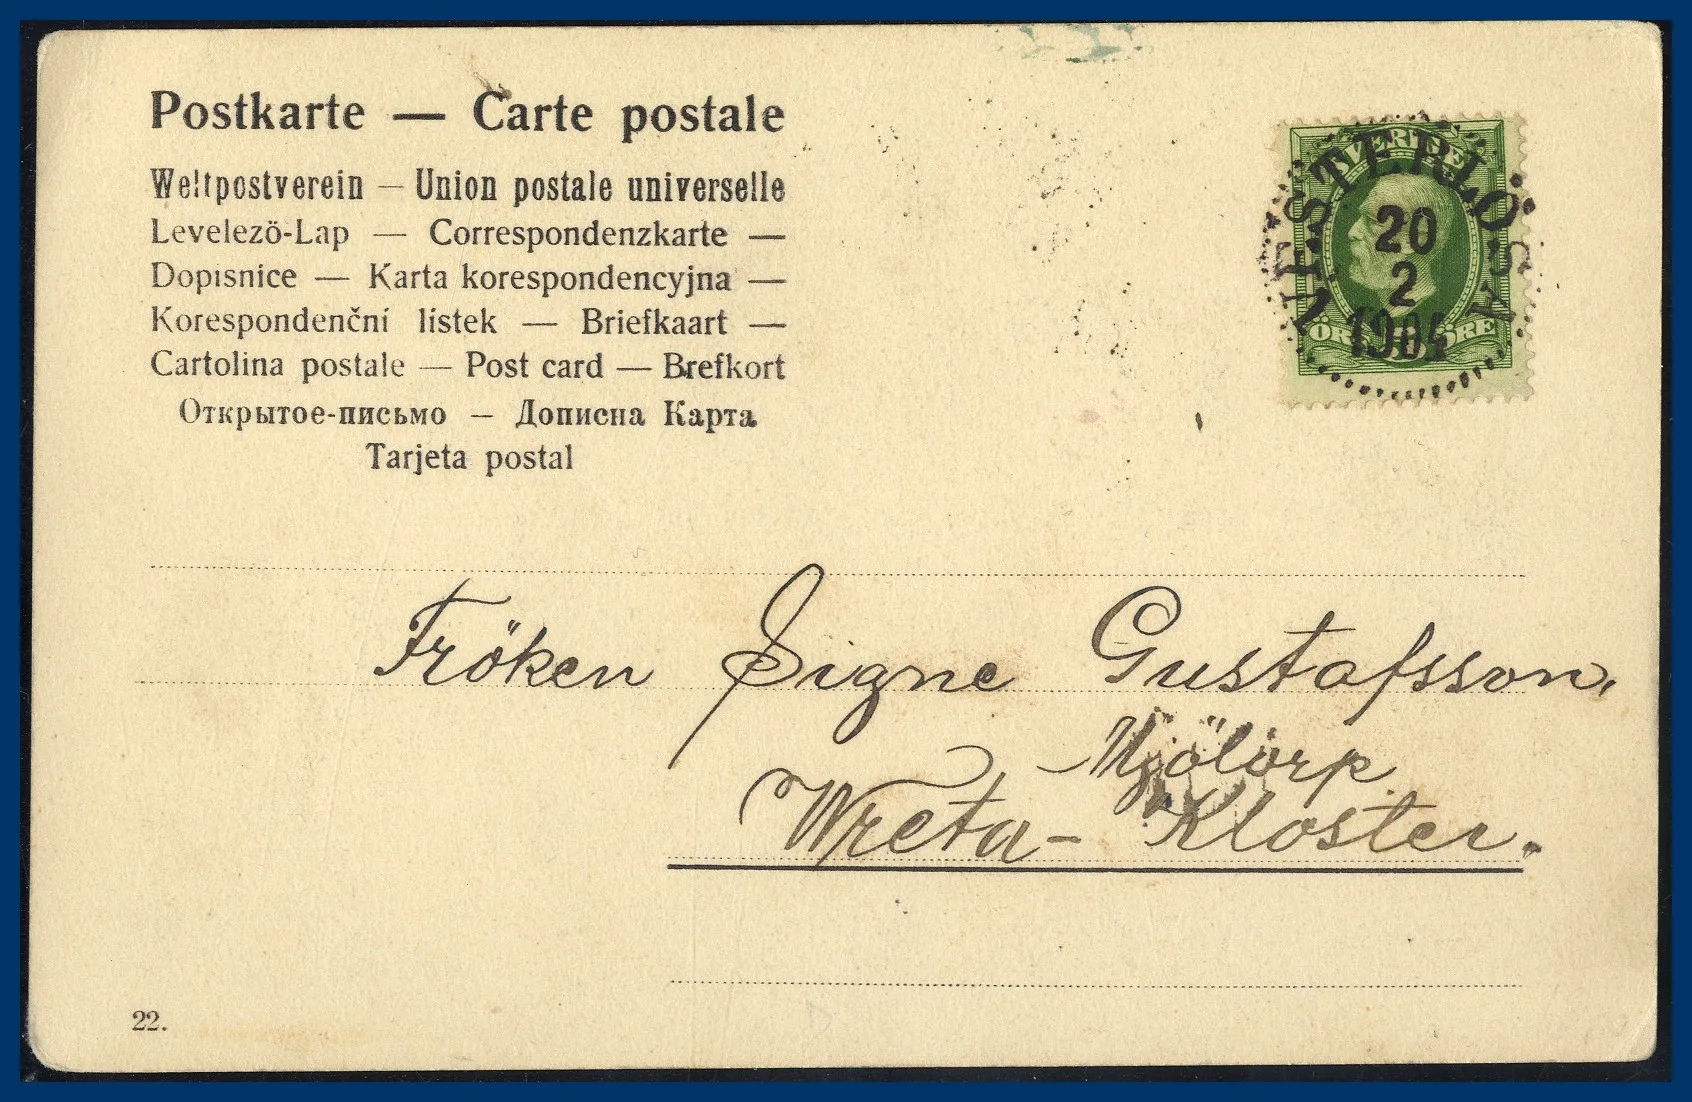 Postkarte — Carte postale
Weltpostverein — Union postale universelle
Levelező-Lap — Correspondenzkarte —
Dopisnice — Karta korespondencyjna —
Korespondenční lístek — Briefkaart —
Cartolina postale — Post card — Brefkort
Открытое-письмо — Дописна Карта
Tarjeta postal
VESTERLÖSA
20
2
1904
ÖRE ÖRE
Fröken Signe Gustafsson,
Mjölorp
Wreta-Kloster.
22.